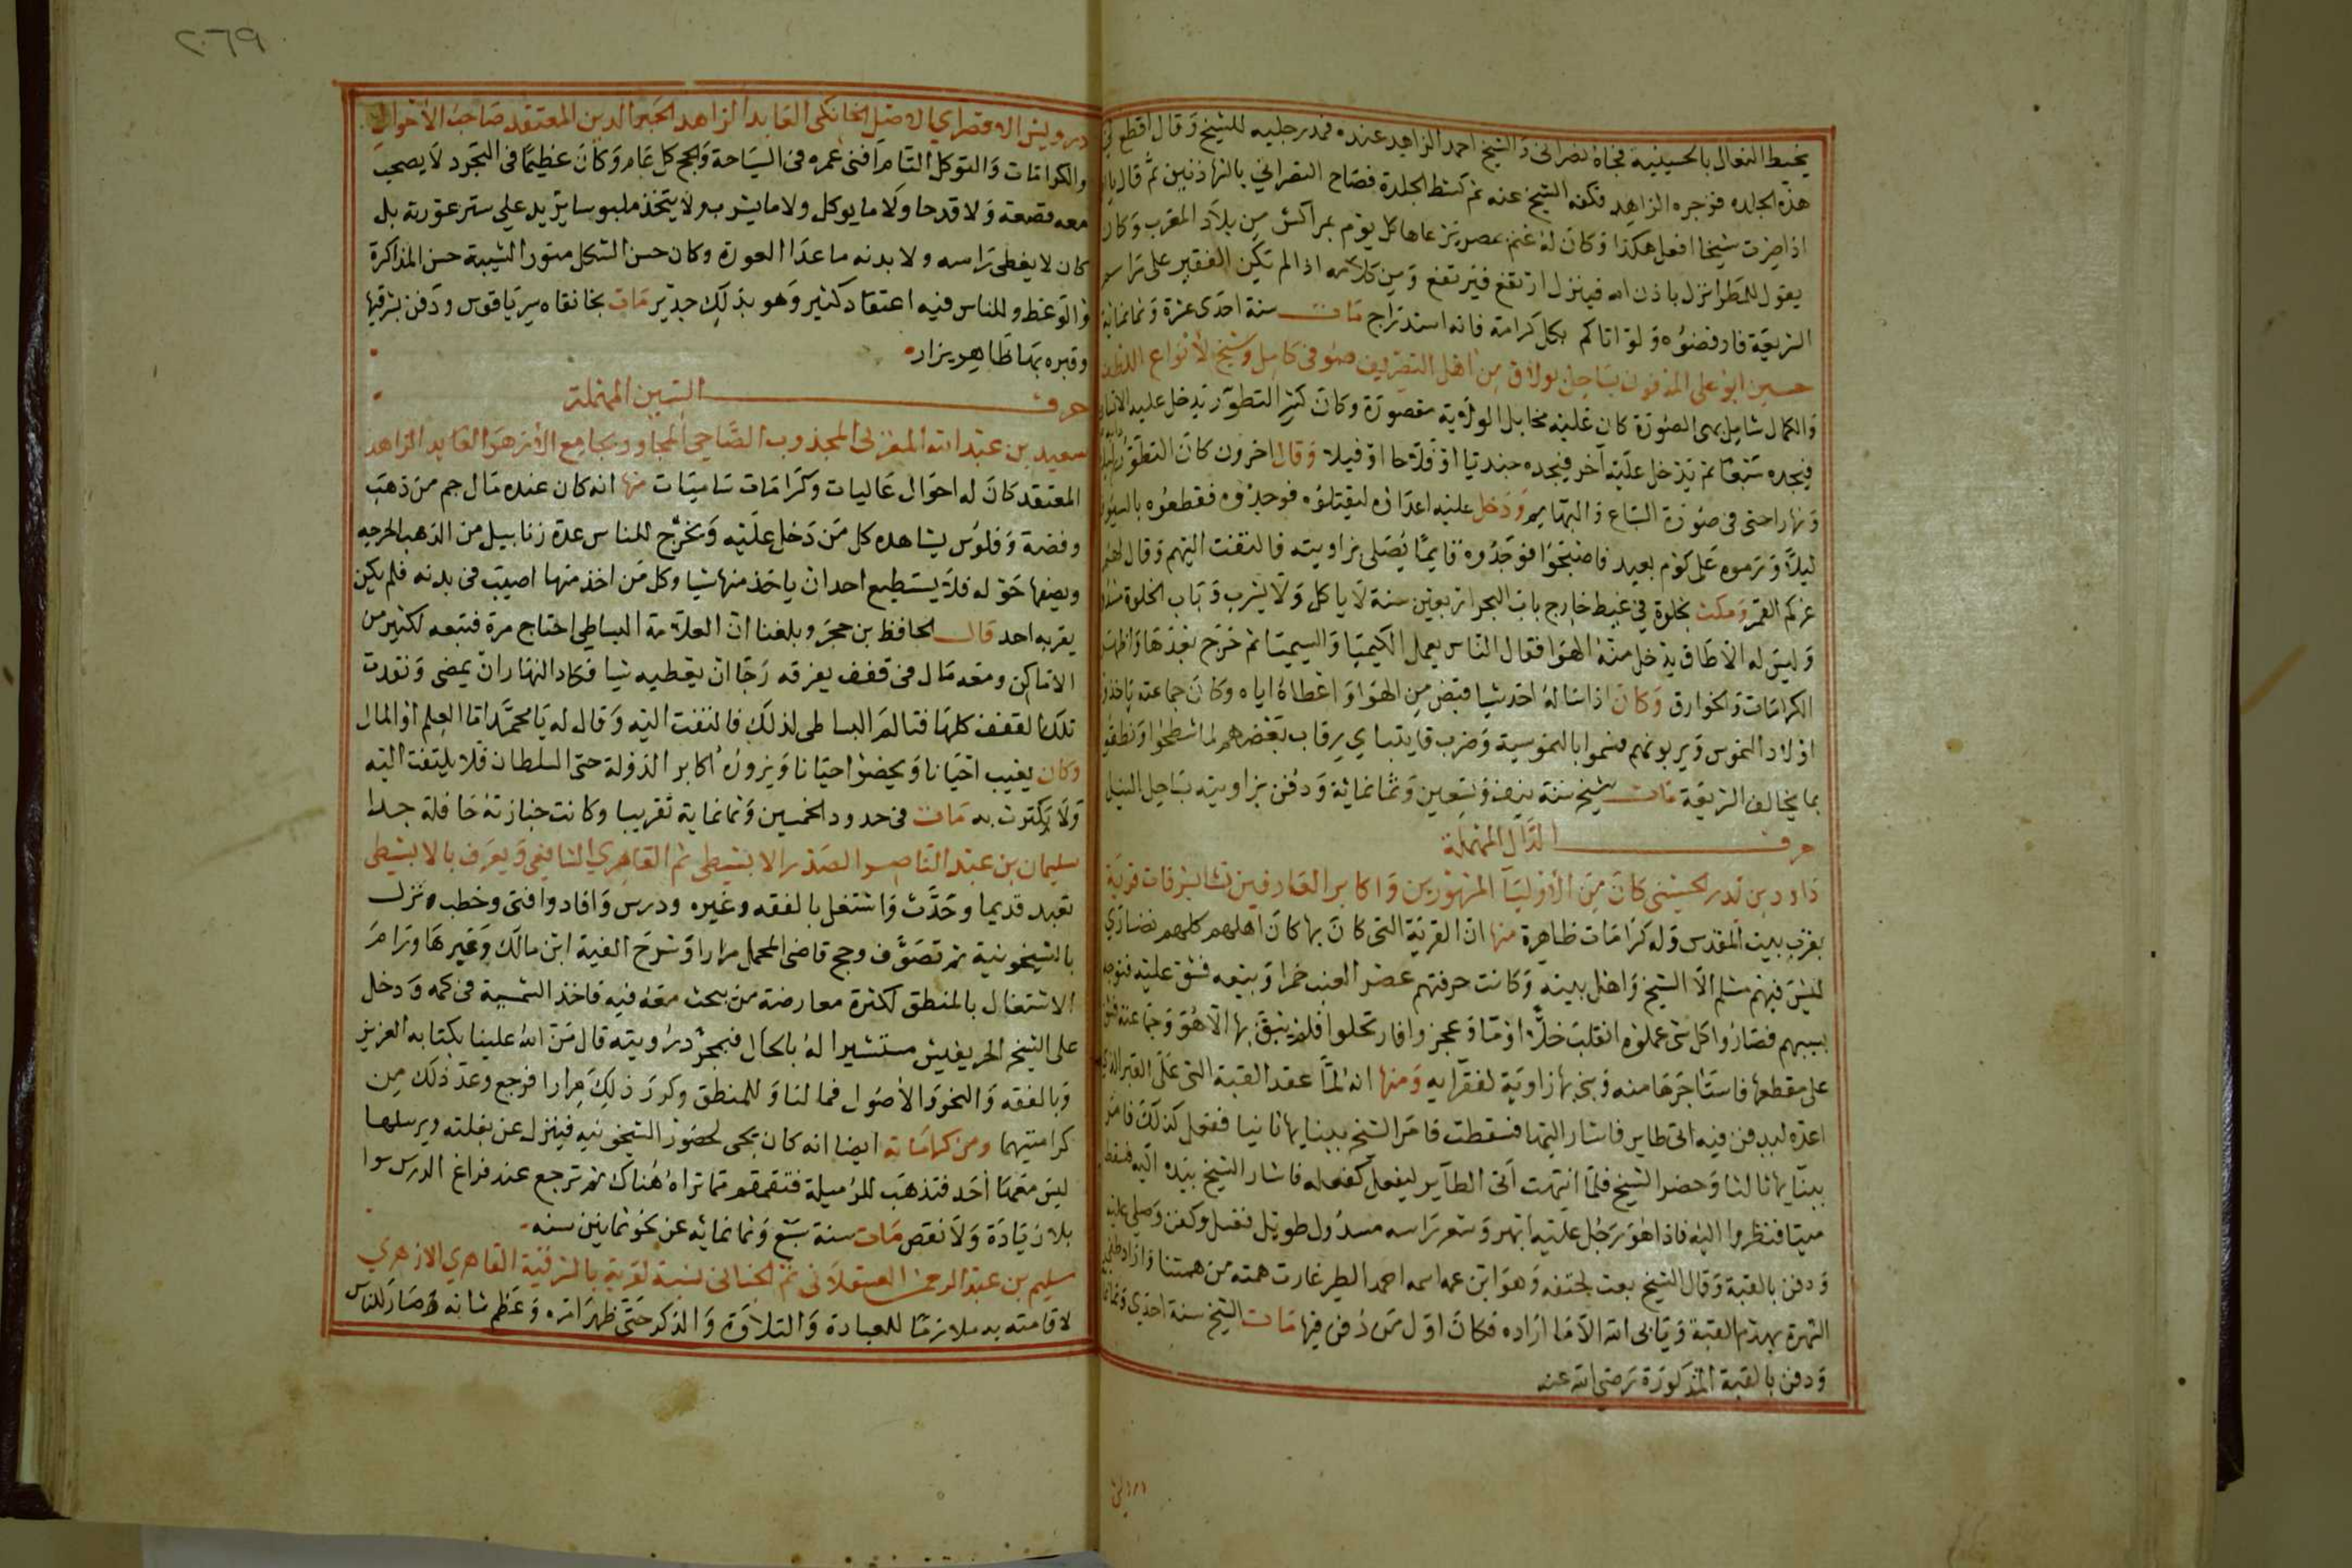 يخيط النعال بالحسينية فجاه نصراني والشيخ احمد الزاهد عنده فمد رجليه للشيخ وقال اقطع لي
هذه الجلده فزجره الزاهد فكفه الشيخ عنه ثم كشط الجلدة فصاح النصراني بالشهادتين ثم قال يا
اذا صرت شيخا افعل هكذا وكان له غنم عصر يرعاها كل يوم بمراكش من بلاد المغرب وكان
يقول للمطر انزل باذن الله فينزل ارتفع فيرتفع ومن كلامه اذا لم تكن الفقير على
الشريعة فارفضوه ولو اتاكم بكل كرامة فانه استدراج مات سنة احدى عشرة وثمانمائة
حسين ابو علي المدفون بساحل بولاق من اهل التصريف صوفي كامل وشيخ لأنواع اللطف
والكمال شامل بهى الصورة كان عليه مخايل الولاية مقصورة وكان كثير التطور يدخل عليه الانسان
فيجده سبعا ثم يدخل عليه آخر فيجده جنديا او فلاحا او فيلا وقال اخرون كان التطور
ونهارا حتى في صورة السباع والبهايم ودخل عليه اعداؤه ليقتلوه فوجدوه فقطعوه بالسيوف
ليلا ورموه على كوم بعيد فاصبحوا فوجدوه قايما يصلي بزاويته فالتفت اليهم وقال لهم
غركم القمر ومكث بخلوة في غيط خارج باب البحر اربعين سنة لا ياكل ولا يشرب وباب الخلوة مسدود
وليس له الا طاق يدخل منه الهوا فقال الناس يعمل الكيميا والسيميا ثم خرج بعدها واظهر
الكرامات والخوارق وكان اذا ساله احد شيا قبض من الهوا واعطاه اياه وكان جماعته ياخذون
اولاد النموس ويربونهم فسموا بالنموسية وضرب قايتباي رقاب بعضهم لما شطحوا ونطقوا
بما يخالف الشريعة مات الشيخ سنة نيف وتسعين وثمانمائة ودفن بزاويته بساحل النيل
حرف الدال المهملة
داود بن بدر الحسيني كان من الأوليآ المشهورين واكابر العارفين نشا بشرفات قرية
بقرب بيت المقدس وله كرامات ظاهرة منها ان القرية التي كان بها كان اهلهم كلهم نصارى
ليس فيهم مسلم الا الشيخ واهل بيته وكانت حرفتهم عصر العنب خمرا وبيعه فشق عليه فتوجه
بسببهم فصاروا كل شى عملوه انقلب خلا او مآ وعجزوا فارتحلوا فلم يبق بها الا هو وجماعته فشق
على مقطعها فاستاجرها منه وبنى بها زاوية لفقرايه ومنها انه لما عقد القبة التي على القبر الذي
اعده ليدفن فيه اتى طاير فاشار اليها فسقطت فامر الشيخ ببنايها ثانيا ففعل كذلك فامر
ببنايها ثالثا وحضر الشيخ فلما انتهت اتى الطاير ليفعل كفعله فاشار الشيخ بيده اليه فسقط
ميتا فنظروا اليه فاذا هو رجل عليه ابهة وشعر راسه مسدول طويل فغسل وكفن وصلي عليه
ودفن بالقبة وقال الشيخ بعث لحتفه وهو ابن عمه اسمه احمد الطير غارت همته من همتنا واراد
الشهرة بهدم القبة ويابى الله الا ما اراده فكان اول من دفن فيها مات الشيخ سنة احدى
ودفن بالقبة المذكورة رضي الله عنه
٢٠٦٩
درويش الاقصراي الاصل الخانكي العابد الزاهد الخير الدين المعتقد صاحب الأحوال
والكرامات والتوكل التام افنى عمره في السياحة والحج كل عام وكان عظيما في التجرد لا يصحب
معه قصعة ولا قدحا ولا ما يوكل ولا ما يشرب ولا يتخذ ملبوسا يزيد على ستر عورته بل
كان لا يغطي راسه ولا بدنه ما عدا العورة وكان حسن الشكل منور الشيبة حسن المذاكرة
والوعظ وللناس فيه اعتقاد كثير وهو بذلك جدير مات بخانقاه سرياقوس ودفن بشرقيها
وقبره بها ظاهر يزار
حرف السين المهملة
سعيد بن عبد الله المغربي المجذوب الصاحي المجاور بجامع الأزهر العابد الزاهد
المعتقد كان له احوال عاليات وكرامات ساميات منها انه كان عنده مال جم من ذهب
وفضة وفلوس يشاهده كل من دخل عليه ويخرج للناس عدة زنابيل من الذهب الهرجه
ويصفها حوله فلا يستطيع احد ان ياخذ منها شيا وكل من اخذ منها اصيب في بدنه فلم يكن
يقربه احد قال الحافظ بن حجر وبلغنا ان العلامة البساطي احتاج مرة فتبعه لكثير من
الاماكن ومعه مال في قفف يفرقه رجا ان يعطيه شيا فكاد النهار ان يمضي ونفدت
تلك القفف كلها فتالم البساطي لذلك فالتفت اليه وقال له يا محمد اما العلم او المال
وكان يغيب احيانا ويحضر احيانا ويزوره اكابر الدولة حتى السلطان فلا يلتفت اليه
ولا يكترث به مات في حدود الخمسين وثمانماية تقريبا وكانت جنازته حافلة جدا
سليمان بن عبد الناصر الصدر الابشيطي ثم القاهري الشافعي ويعرف بالابشيطي
تعبد قديما وحدث واشتغل بالفقه وغيره ودرس وافاد وافتى وخطب ونزل
بالشيخونية ثم تصوف وحج قاضي المحمل مرارا وشرح الفية ابن مالك وغيرها ورام
الاشتغال بالمنطق لكثرة معارضة من يبحث معه فيه فاخذ الشمسية في كمه ودخل
على الشيخ الحريفيش مستشيرا له بالحال فبمجرد رؤيته قال من الله علينا بكتابه العزيز
وبالفقه والنحو والأصول فما لنا وللمنطق وكرر ذلك مرارا فرجع وعد ذلك من
كرامتيهما ومن كراماته ايضا انه كان يجي لحضور الشيخونيه فينزل عن بغلته ويرسلها
ليس معها احد فتذهب للرميلة فتقمقم مما تراه هناك ثم ترجع عند فراغ الدرس سوا
بلا زيادة ولا نقص مات سنة سبع وثمانمائه عن نحو ثمانين سنه
سليم بن عبد الرحمن العسقلاني ثم الجناني نسبة لقرية بالشرقية القاهري الازهري
لاقامته به ملازما للعبادة والتلاوة والذكر حتى ظهر امره وعظم شانه وصار للناس